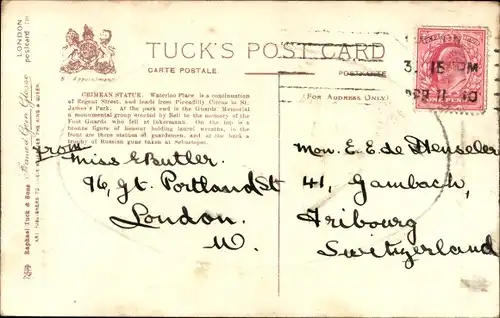 LONDON
postcard
TUCK'S POST CARD
CARTE POSTALE
POSTKARTE
By Appointment
(FOR ADDRESS ONLY)
CRIMEAN STATUE. Waterloo Place is a continuation
of Regent Street, and leads from Piccadilly Circus to St.
James's Park. At the park end is the Guards' Memorial
a monumental group erected by Bell to the memory of the
Foot Guards who fell at Inkermann. On the top is a
bronze figure of honour holding laurel wreaths, in the
front are three statues of guardsmen, and at the back a
trophy of Russian guns taken at Sebastopol.
Raphael Tuck & Sons
ART PUBLISHERS TO THE KING & QUEEN
3.15 PM
APR 11 10
ONE PENNY
From
Miss E Butler.
96, Gt. Portland St
London.
W.
Mon. E. E. de Henseler
41, Gambach,
Fribourg
Switzerland